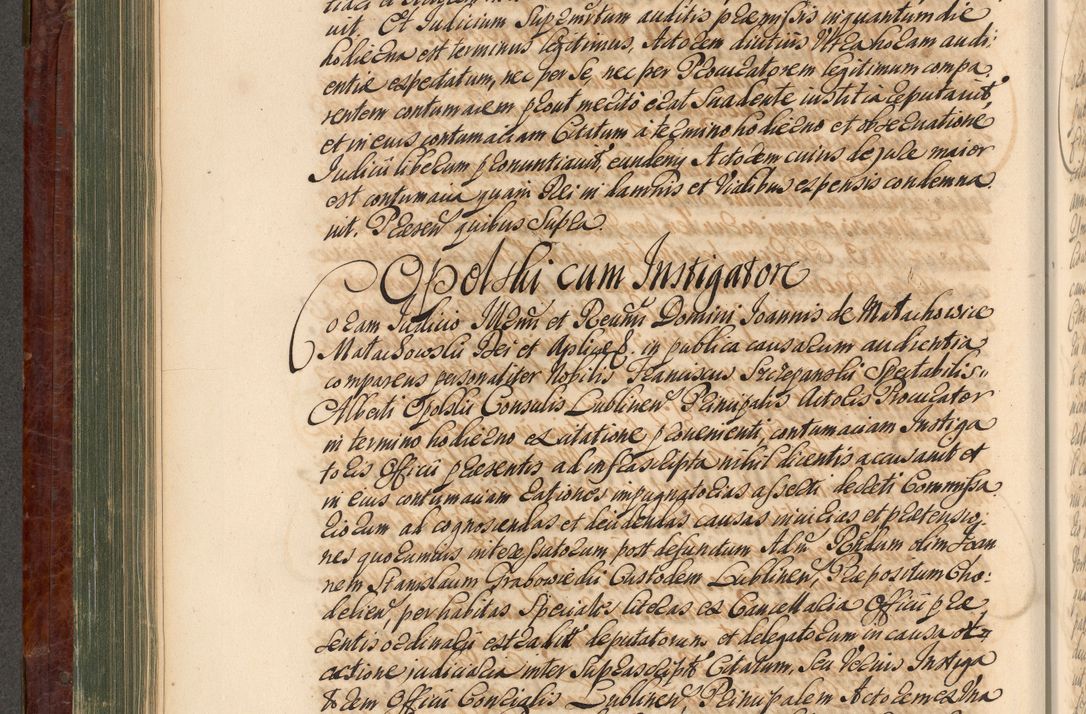 uit. Et Judicium Supremitum auditis praemissis inquantum die
hodierna est terminus legitimus, Actorem diutius Ultra horam audi:
entiae expectatum, nec per Se, nec per Procuratorem legitimum compa
rentem contumacem prout merito erat Suadente iustitia reputavit,
et in eius contumaciam Citatum a termino hodierno et observatione
Judicii liberum pronuntiavit, eundemq Actorem cuius de jure maior
est contumacia quam Rei in damnis et Vialibus expensis condemna
vit. Praesen quibus Supra.
Opolski cum Instigatore
Coram Judicio Illmi et Revmi Domini Joannis de Małachowice
Małachowski Dei et Aplicae S. in publica causarum audientia
comparens personaliter Nobilis Franciscus Szczepanski Spectabilis
Alberti Opolski Consulis Lublinen Principalis Actoris Procurator
in termino hodierno ex citatione provenienti, contumaciam Instiga
toris Officii praesentis ad infrascripta nihil dicentis accusavit et
in eius contumaciam rationes impugnatorias asserti decreti Commissa
riorum ad cognoscendas et decidendas causas iniurias et praetensio
nes quorumvis interessatorum post defunctum Adm Rndum olim Joan
nem Stanislaum Grabowiecki Custodem Lublinen, Praepositum Cho:
delien, per habitas Speciales literas ex Cancellaria Officii prae
sentis ordinarii extradit deputatorum et delegatorum in causa et
actione judiciaria inter Suprascript Citatum, Seu Verius Instiga
torem Officii Consularis Lublinen Principalem Actorem ex Una